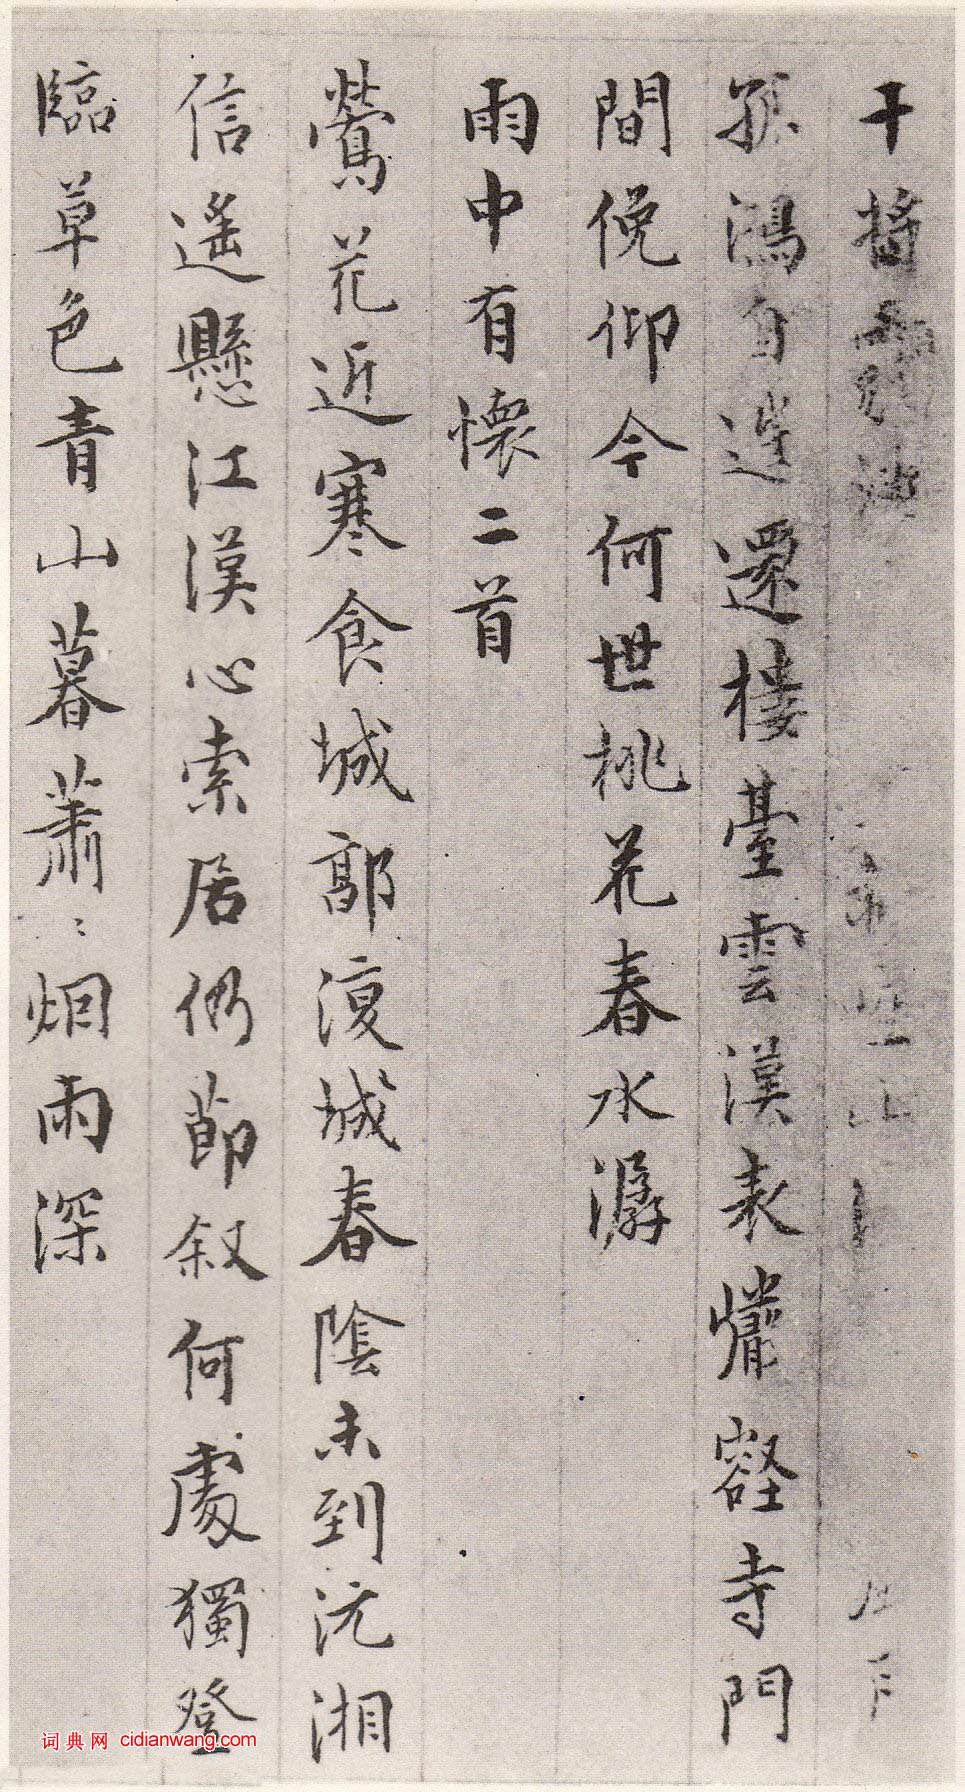 干將
孤鴻自逝還樓臺雲漢表懽壑寺門
間俛仰今何世桃花春水潺
雨中有懷二首
鶯花近寒食城郭復城春陰未到沅湘
信遙懸江漢心索居仍節叙何處獨登
臨草色青山暮蕭〻烟雨深
词典网 cidianwang.com